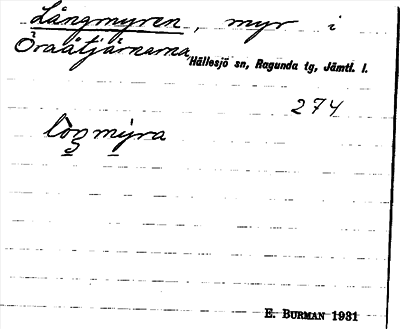 Långmyren, myr i
Öraåtjärnarna, Hällesjö sn, Ragunda tg, Jämtl. l.
274
lòŋmýra
E. BURMAN 1931